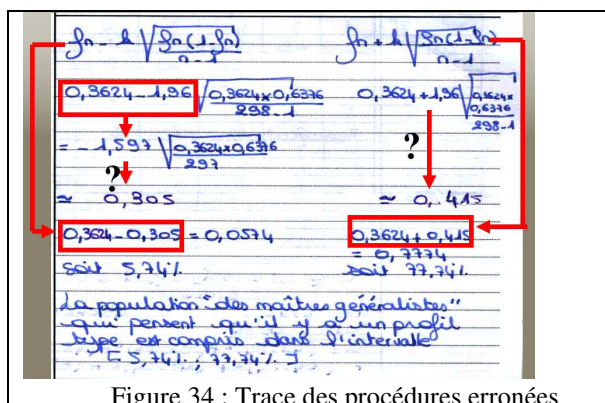 fn - k √fn(1-fn)/n-1    fn + k √fn(1-fn)/n-1
0,3624 - 1,96 √0,3624x0,6376/298-1    0,3624 + 1,96 √0,3624x0,6376/298-1
= - 1,597 √0,3624x0,6376/297    ?
?
≈ 0,305    ≈ 0,415
0,3624 - 0,305 = 0,0574    0,3624 + 0,415
= 0,7774
soit 5,74%    soit 77,74%
La population "des maîtres généralistes"
qui pensent qu'il y a un profil
type est compris dans l'intervalle
[5,74% ; 77,74%]
Figure 34 : Trace des procédures erronées